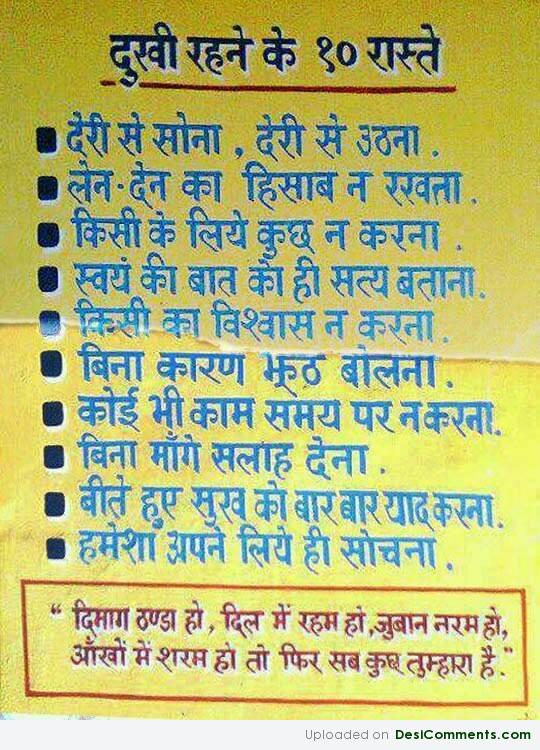 दुखी रहने के १० रास्ते
देरी से सोना , देरी से उठना .
लेन-देन का हिसाब न रखता .
किसी के लिये कुछ न करना .
स्वयं की बात को ही सत्य बताना.
किसी का विश्वास न करना .
बिना कारण झूठ बोलना .
कोई भी काम समय पर न करना.
बिना माँगे सलाह देना .
बीते हुए सुख को बार बार याद करना.
हमेशा अपने लिये ही सोचना .
“ दिमाग ठण्डा हो , दिल में रहम हो ,जुबान नरम हो,
आँखों में शरम हो तो फिर सब कुछ तुम्हारा है.”
Uploaded on DesiComments.com